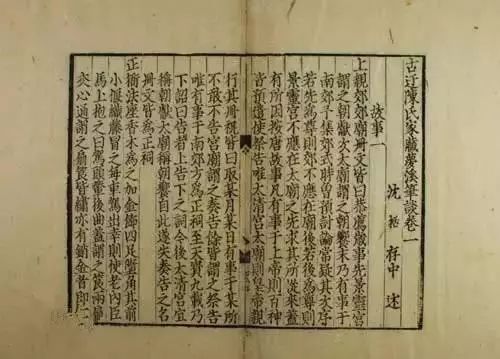 古迂陳氏家藏夢溪筆談卷一
沈括存中述
故事一
上親郊郊廟冊文皆曰恭薦歲事先景靈宮
謂之朝獻次太廟謂之朝饗末乃有事于
南郊予集郊式時曾預討論常疑其次序
若先為尊則郊不應在廟後若後為尊則
景靈宮不應在太廟之先求其所從來蓋
有所因按唐故事凡有事于上帝則百神
皆預遣使祭告唯太清宮太廟則皇帝親
行其冊祝皆曰取某月某日有事于某所
不敢不告宮廟謂之奏告餘皆謂之祭告
唯有事于南郊方為正祠至天寶九載乃
下詔曰告者上告下之詞今後太清宮宜
稱朝獻太廟稱朝饗自此遂失奏告之名
冊文皆為正祠
正衙法座香木為之加金飾四足墮角其前
小偃織藤冒之每車駕出幸則使老內臣
馬上抱之曰駕頭輦後曲蓋謂之筤兩扇
夾心通謂之扇筤皆繡亦有銷金者即古